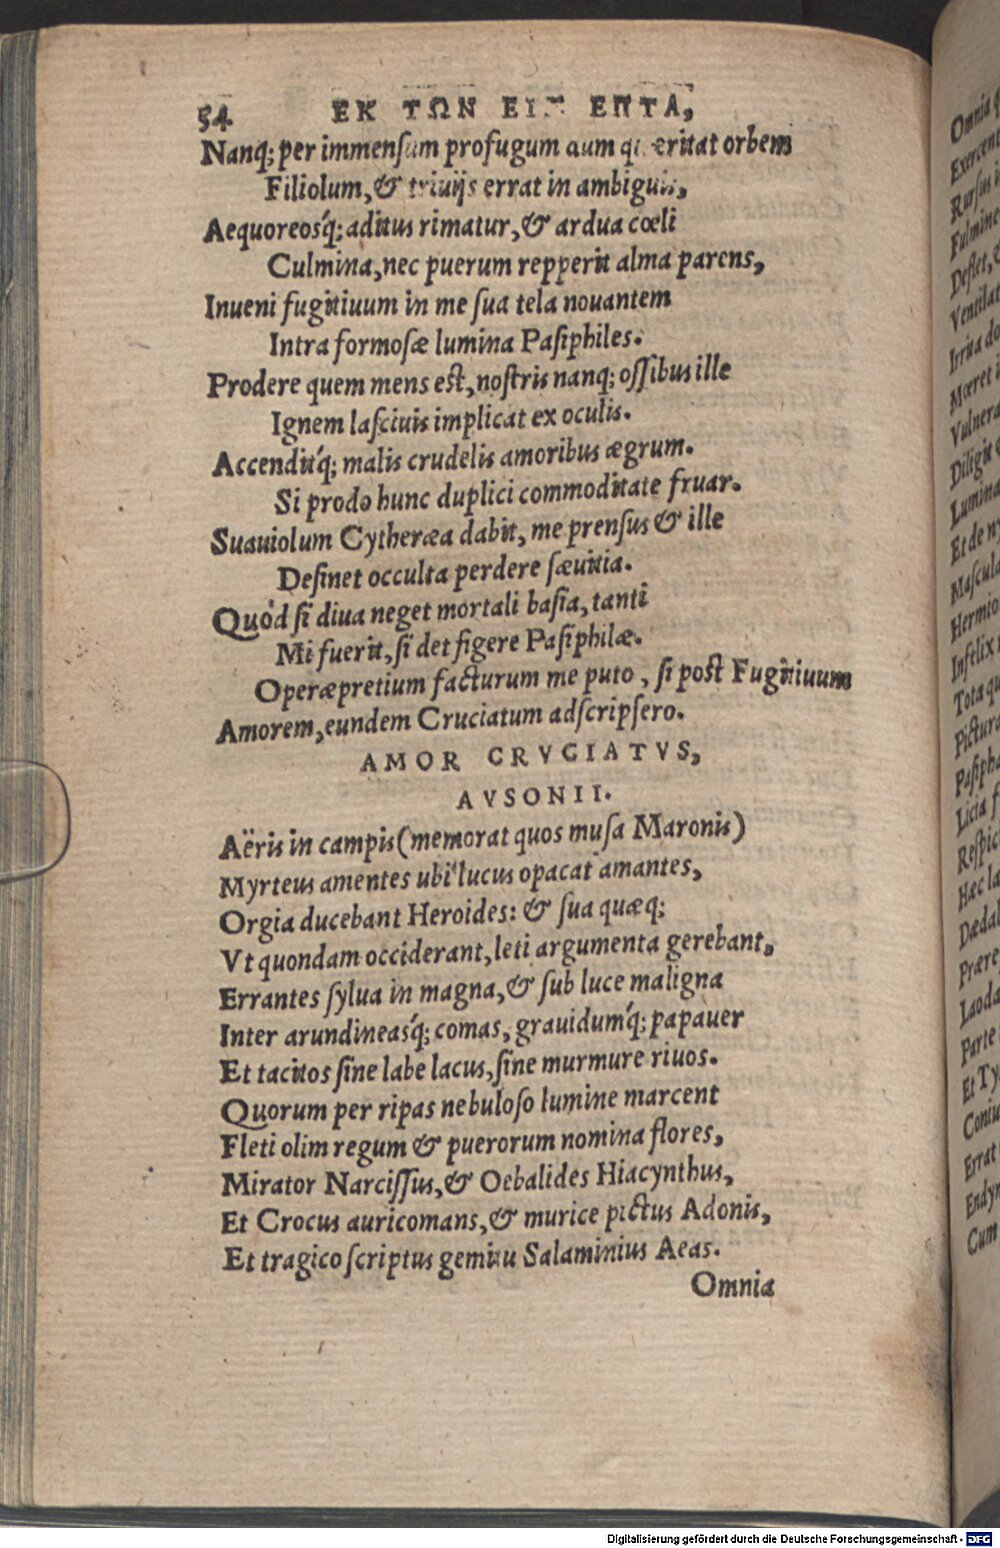 54 ΕΚ ΤΩΝ ΕΠΤΑ,
Nanq; per immensum profugum dum quæritat orbem
Filiolum, & triuijs errat in ambiguis,
Aequoreosq́; aditus rimatur, & ardua cœli
Culmina, nec puerum repperit alma parens,
Inueni fugitiuum in me sua tela nouantem
Intra formosæ lumina Pasiphiles.
Prodere quem mens est, nostris nanq; ossibus ille
Ignem lasciuis implicat ex oculis.
Accenditq́; malis crudelis amoribus ægrum.
Si prodo hunc duplici commoditate fruar.
Suauiolum Cytheræa dabit, me prensus & ille
Desinet occulta perdere sæuitia.
Quòd si diua neget mortali basia, tanti
Mi fuerit, si det figere Pasiphilæ.
Operæpretium facturum me puto, si post Fugitiuum
Amorem, eundem Cruciatum adscripsero.
AMOR CRVCIATVS,
AVSONII.
Aëris in campis (memorat quos musa Maronis)
Myrteus amentes ubi lucus opacat amantes,
Orgia ducebant Heroides: & sua quæq;
Vt quondam occiderant, leti argumenta gerebant,
Errantes sylua in magna, & sub luce maligna
Inter arundineasq́; comas, grauidumq́; papauer
Et tacitos sine labe lacus, sine murmure riuos.
Quorum per ripas nebuloso lumine marcent
Fleti olim regum & puerorum nomina flores,
Mirator Narcissus, & Oebalides Hiacynthus,
Et Crocus auricomans, & murice pictus Adonis,
Et tragico scriptus gemitu Salaminius Aeas.
Omnia
Omnia
Exercent
Rursus
Fulmine
Deflet,
Ventilat
Irrita do
Mœret
Vulnera
Diligit
Lumina
Et de n
Mascula
Hermio
Infelix
Tota qu
Pictura
Pasipha
Licia f
Respic
Hæc la
Dædal
Prære
Laoda
Parte
Et Ty
Coniu
Errat
Endyr
Cum
Digitalisierung gefördert durch die Deutsche Forschungsgemeinschaft - DFG